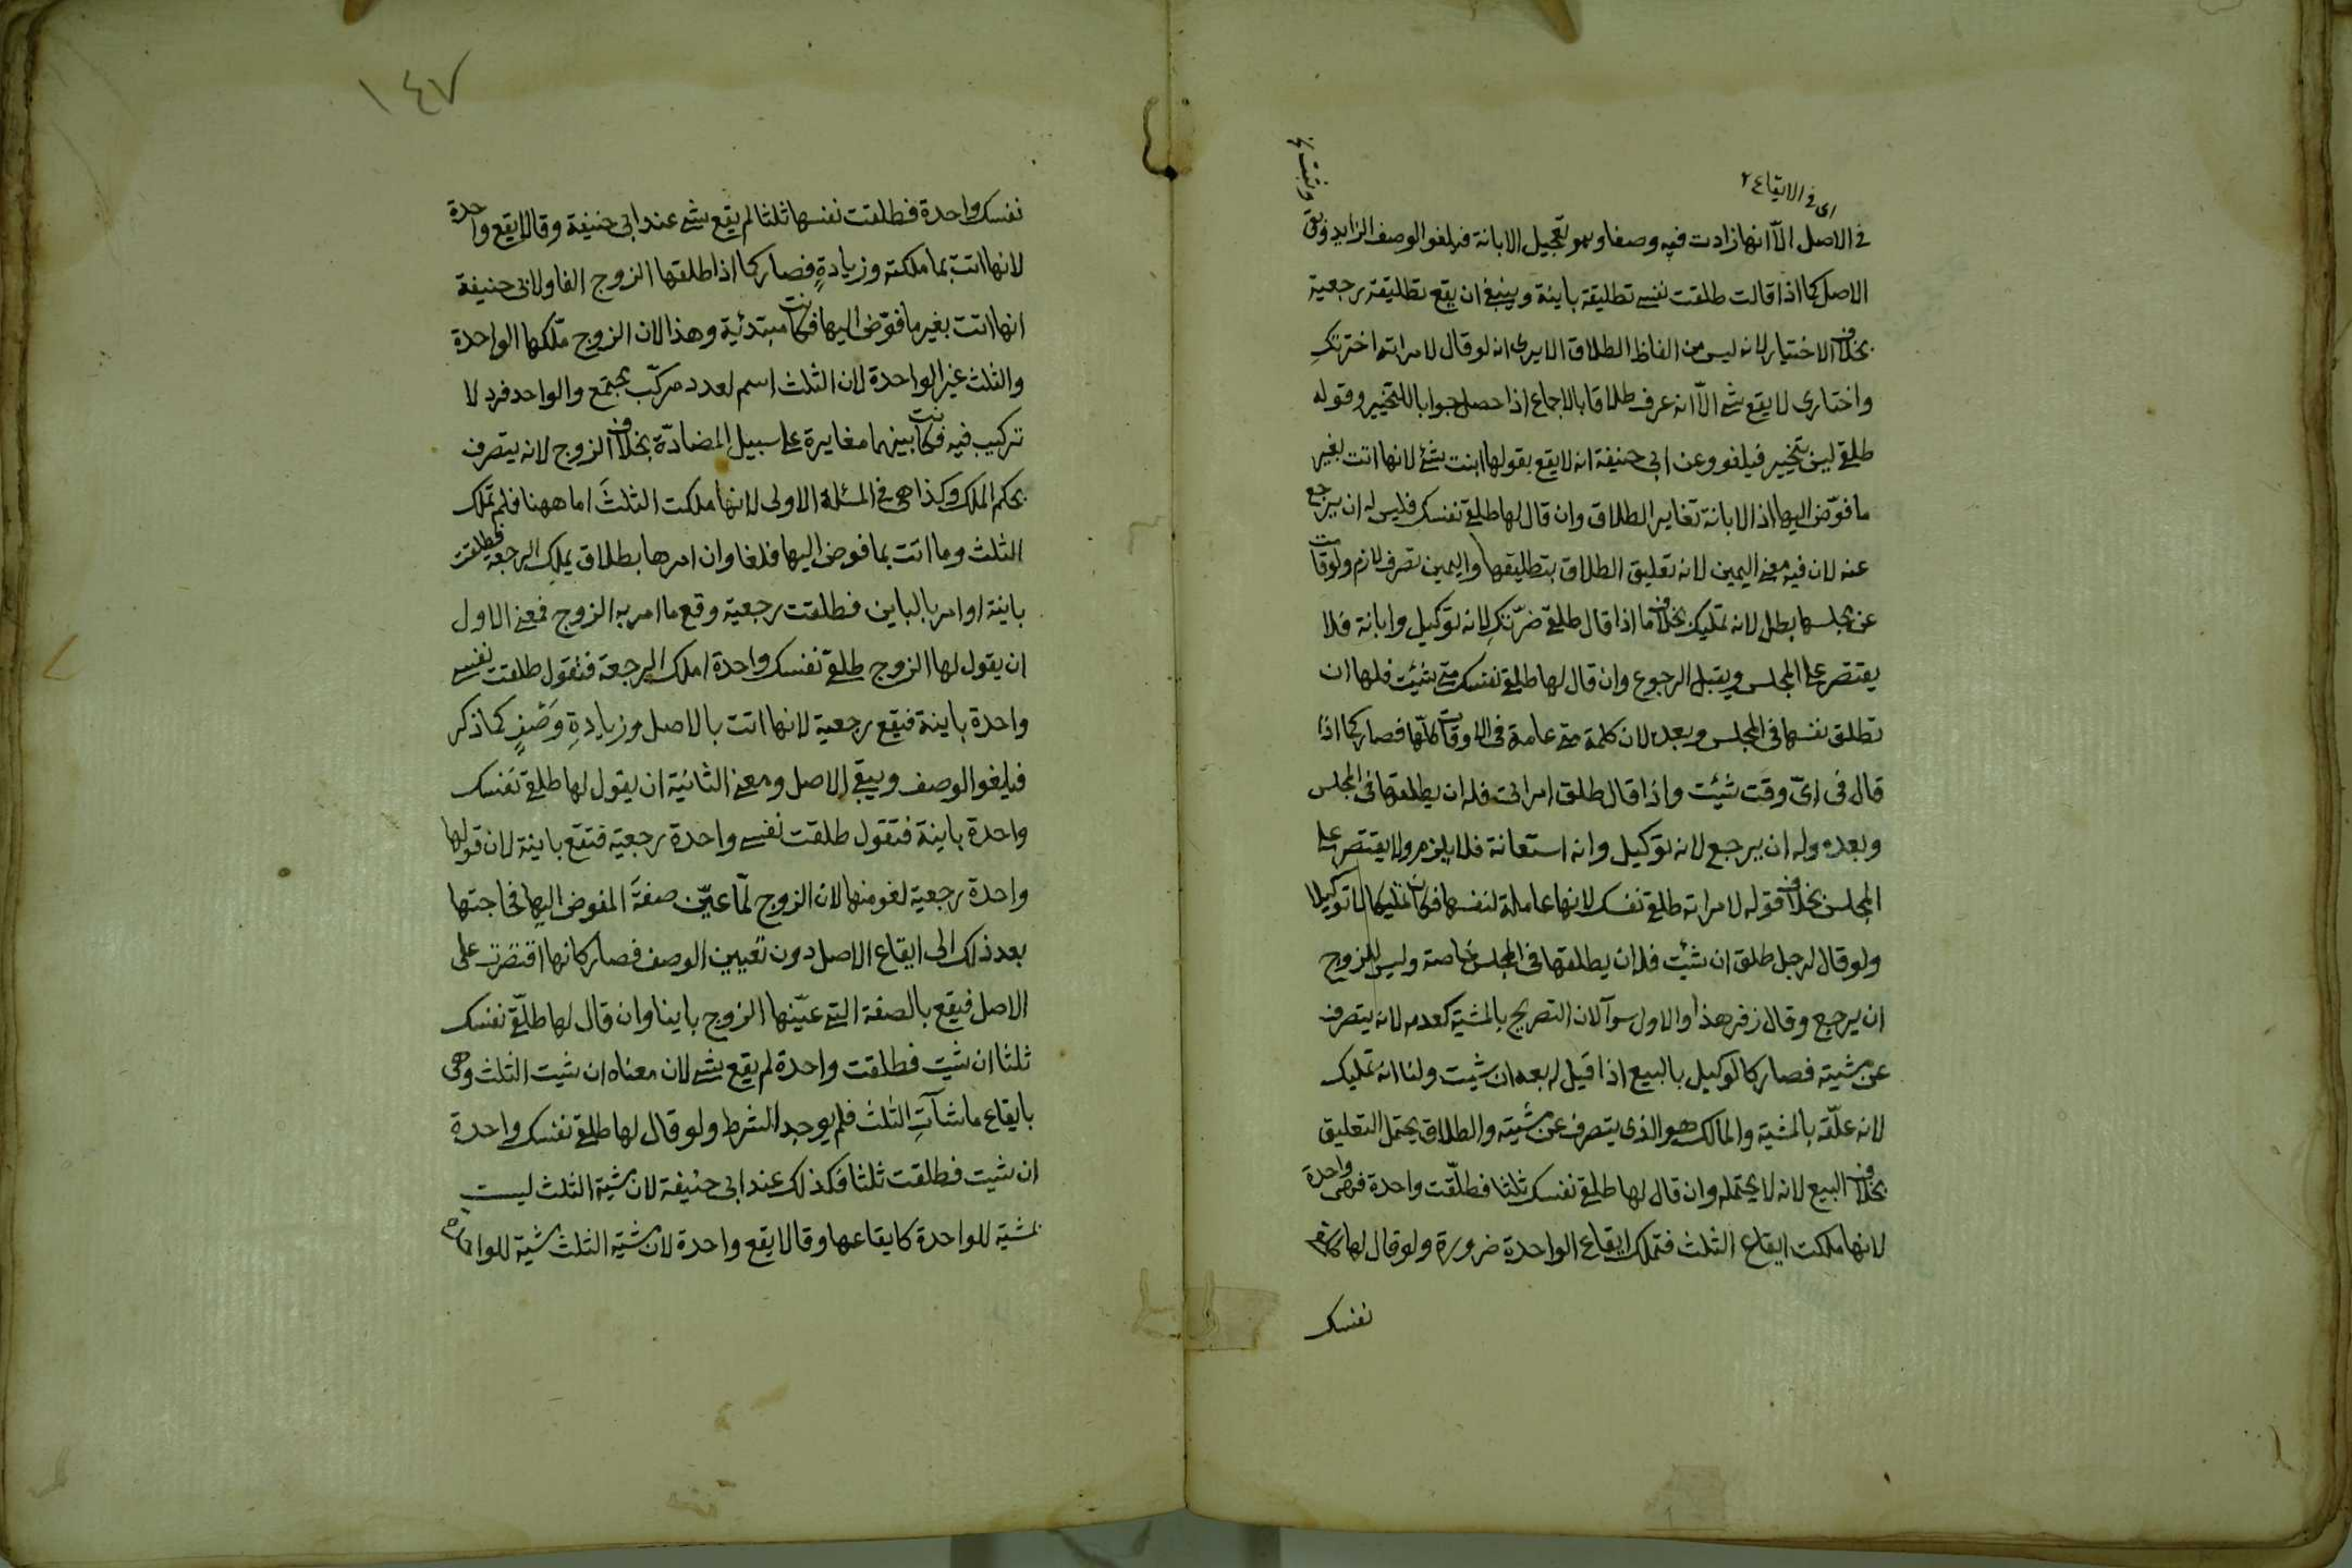 اى فى الايقاع
وثبت
فى الاصل الّا انها زادت فيه وصفا وهو تعجيل الابانة فيلغو الوصف الزايد ويق
الاصل كما اذا قالت طلقت نفسى تطليقة باينة وينبغى ان يقع تطليقة رجعية
بخلاف الاختيار لانه ليس من الفاظ الطلاق الا يرى انه لو قال لامراته اخترتكِ
واختارى لا يقع شى الّا انه عرف طلاقا بالاجماع اذا حصل جوابا للتخيير وقوله
طلقى ليس بتخيير فيلغو وعن ابى حنيفة انه لا يقع بقولها ابنت شئ لانها اتت بغير
ما فوّض اليها اذ الابانة تغاير الطلاق وان قال لها طلقى نفسك فليس له ان يرجع
عنه لان فيه معنى اليمين لانه تعليق الطلاق بتطليقها واليمين تصرف لازم ولو قامت
عن مجلسها بطل لانه تمليك بخلاف ما اذا قال طلقى ضرّتكِ لانه توكيل وابانة فلا
يقتصر على المجلس ويقبل الرجوع وان قال لها طلقى نفسك متى شئت فلها ان
تطلق نفسها فى المجلس وبعده لان كلمة متى عامة فى الاوقات كلّها فصار كما اذا
قال فى اىّ وقت شئت واذا قال طلق امراتى فله ان يطلقها فى المجلس
وبعده وله ان يرجع لانه توكيل وانه استعانة فلا يلزم ولا يقتصر على
المجلس بخلاف قوله لامراته طلقى نفسك لانها عاملة لنفسها فكان تمليكا لا توكيلا
ولو قال لرجل طلق ان شئت فله ان يطلقها فى المجلس خاصة وليس للزوج
ان يرجع وقال زفر هذا والاول سوآ لان التصريح بالمشية كعدمه لانه يتصرف
عن مشيته فصار كالوكيل بالبيع اذا قيل له بعه ان شيت ولنا انه تمليك
لانه علّقه بالمشية والمالك هو الذى يتصرف عن مشيّته والطلاق يحتمل التعليق
بخلاف البيع لانه لا يحتمله وان قال لها طلقى نفسك ثلثا فطلّقت واحدة فهى واحدة
لانها ملكت ايقاع الثلث فتملك ايقاع الواحدة ضرورة ولو قال لها طلقى
نفسك
١٤٧
نفسك واحدة فطلقت نفسها ثلثا لم يقع شى عند ابى حنيفة وقالا يقع واحدة
لانها اتت بما ملكته وزيادةٍ فصار كما اذا طلقها الزوج الفا ولابى حنيفة
انها اتت بغير ما فوّض اليها فكانت مبتدئية وهذا لان الزوج ملّكها الواحدة
والثلث غير الواحدة لان الثلث اسم لعدد مركّب مجتمع والواحد فرد لا
تركيب فيه فكانت بينهما مغايرة على سبيل المضادّة بخلاف الزوج لانه يتصرف
بحكم الملك وكذا هى فى المسئلة الاولى لانها ملكت الثلثَ اما ههنا فلم تملك
الثلث وما اتت بما فوض اليها فلغا وان امرها بطلاق يملك الرجعة فطلقت
باينة او امر بالباين فطلقت رجعية وقع ما امر به الزوج فمعنى الاول
ان يقول لها الزوج طلقى نفسك واحدة املك الرجعة فتقول طلقت نفسى
واحدة باينة فيقع رجعية لانها اتت بالاصل وزيادةِ وَصْفٍ كما ذكر
فيلغو الوصف ويبقى الاصل ومعنى الثانية ان يقول لها طلقى نفسك
واحدة باينة فتقول طلقت نفسى واحدة رجعية فتقع باينة لان قولها
واحدة رجعية لغو منها لان الزوج لمّا عيّن صفةَ المفوض اليها فحاجتها
بعد ذلك الى ايقاع الاصل دون تعيين الوصف فصار كانها اقتصرت على
الاصل فيقع بالصفة التى عيّنها الزوج باينا وان قال لها طلّقى نفسك
ثلثا ان شيت فطلقت واحدة لم يقع شى لان معناه ان شيت الثلث وهى
بايقاع ما شآت الثلث فلم يوجد الشرط ولو قال لها طلقى نفسك واحدة
ان شيت فطلقت ثلثا فكذلك عند ابى حنيفة لان مشية الثلث ليست
بمشية للواحدة كايقاعها وقالا يقع واحدة لان مشية الثلث مشية للواحدة